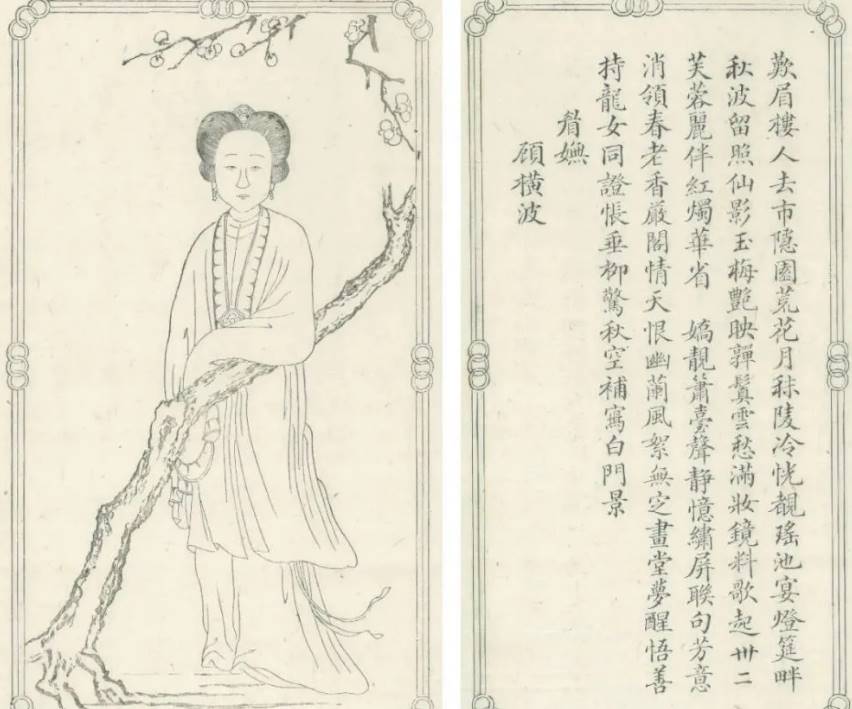 歎眉樓人去市隱園荒花月秣陵冷恍覩瑤池宴燈筵畔
秋波留照仙影玉梅艷映嚲鬟雲愁滿妝鏡料歌起卅二
芙蓉麗伴紅燭華省　嬌靚簫臺聲静憶繡屏聯句芳意
消領春老香嚴閣情天恨幽蘭風絮無定畫堂夢醒悟善
持龍女同證悵垂柳驚秋空補寫白門景
眉嫵
顧橫波